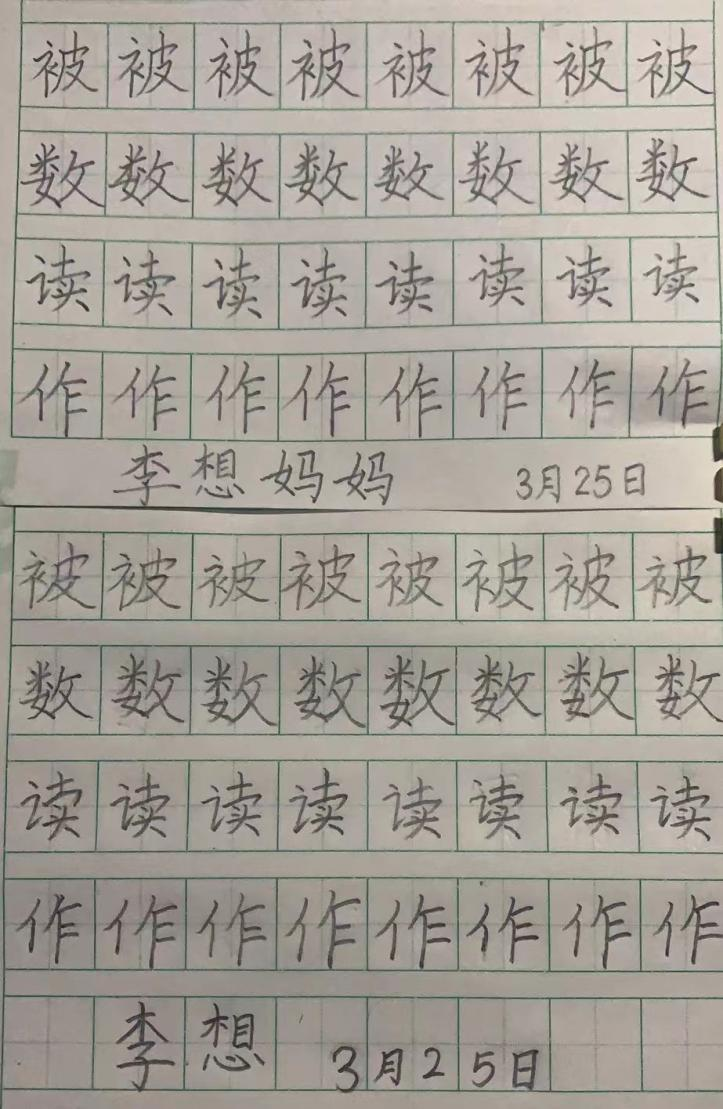 被被被被被被被被
数数数数数数数数
读读读读读读读读
作作作作作作作作
李想妈妈 3月25日
被被被被被被被被
数数数数数数数数
读读读读读读读读
作作作作作作作作
李想 3月25日